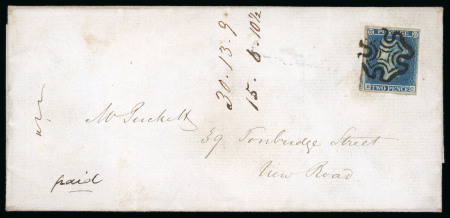 30. 13. 9
15. 8. 10½
TWO PENCE
Mr Puckett
39 Tonbridge Street
View Road
paid